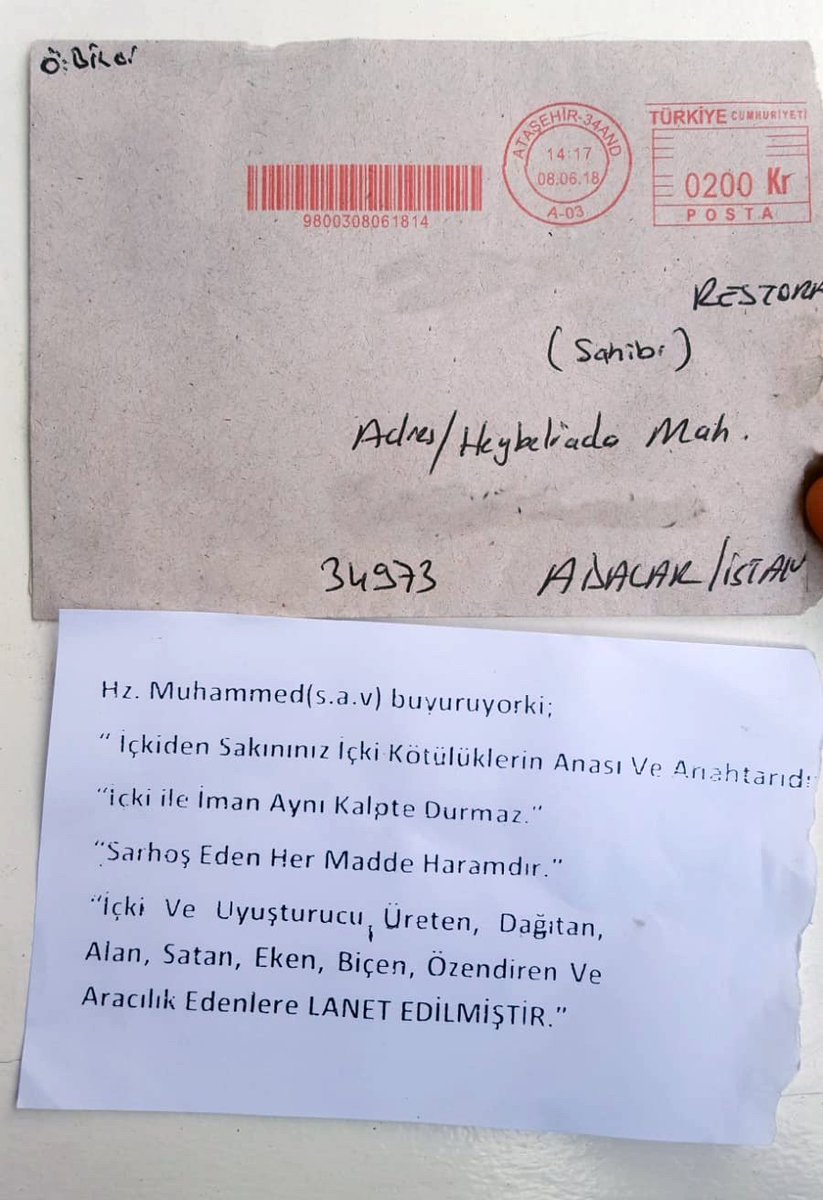 ATAŞEHİR-34AND
14:17
08.06.18
A-03
TÜRKİYE CUMHURİYETİ
0200 Kr
POSTA
9800308061814
(Sahibi)
Adres/Heybeliada Mah.
34973
ADALAR/İSTAN
Hz. Muhammed(s.a.v) buyuruyorki;
“ İçkiden Sakınınız İçki Kötülüklerin Anası Ve Anahtarıdı
“içki ile İman Aynı Kalpte Durmaz.”
“Sarhoş Eden Her Madde Haramdır.”
“İçki Ve Uyuşturucu, Üreten, Dağıtan,
Alan, Satan, Eken, Biçen, Özendiren Ve
Aracılık Edenlere LANET EDİLMİŞTİR.”